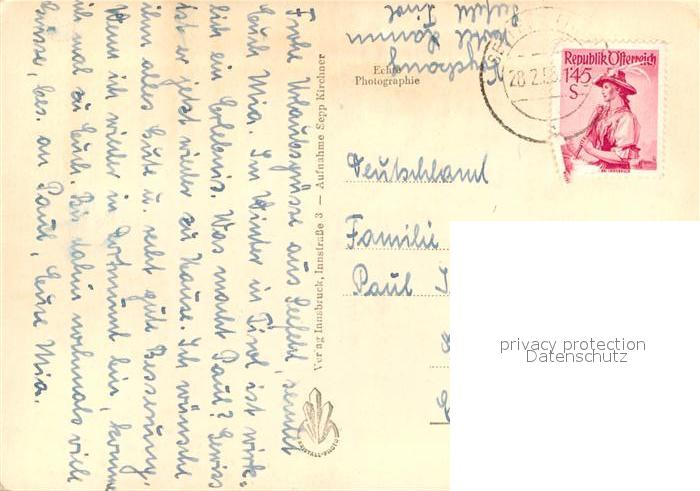 Frohe Urlaubsgrüsse aus Seefeld, sendet
Euch Mia. Im Winter in Tirol ist wirk-
lich ein Erlebnis. Was macht Paul? Gewiss
ist er jetzt wieder zu Hause. Ich wünsche
ihm alles Gute u. recht gute Besserung.
Wenn ich wieder in Dortmund bin, komme
ich mal zu Euch. Bis dahin nochmals viele
Grüsse, bes. an Paul, Eure Mia.
Verlag Innsbruck, Innstraße 3 — Aufnahme Sepp Kirchner
KRISTALL-PHOTO
Seefeld Tirol
Echte
Photographie
28.2.5
Republik Österreich
1'45
S
Deutschland
Familie
Paul
privacy protection
Datenschutz